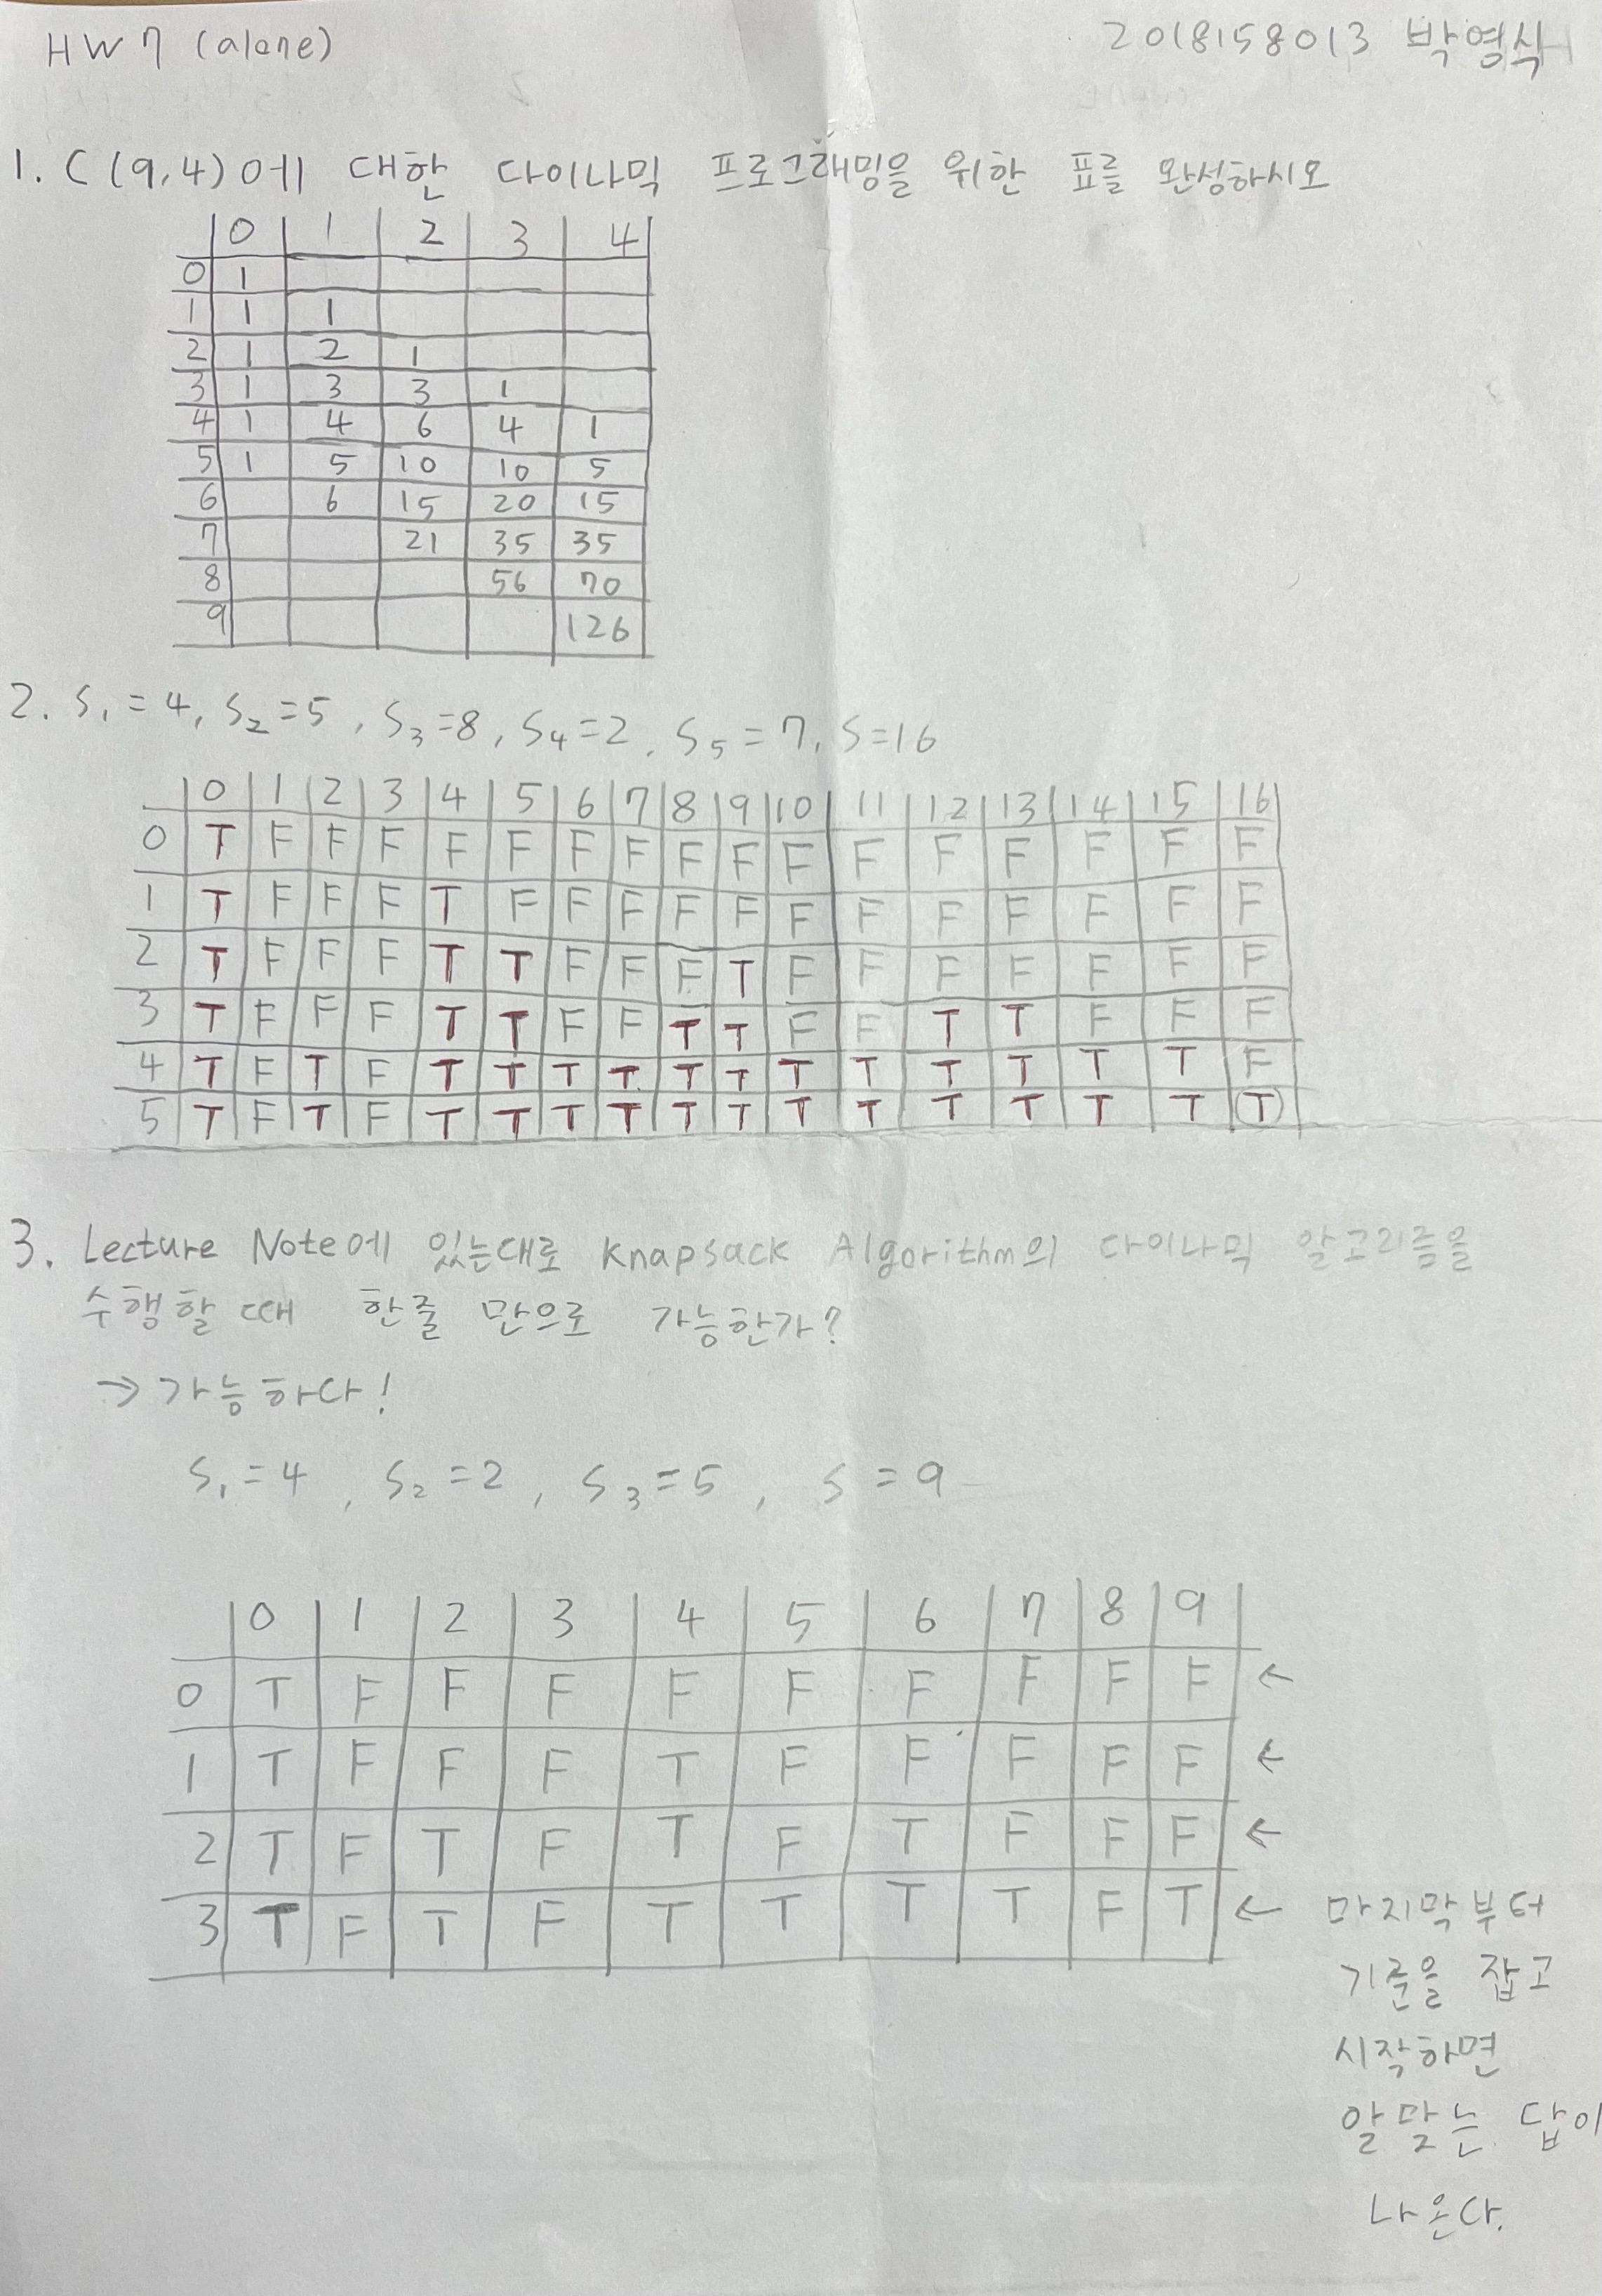 HW7 (alone)
2018158013 박영식
1. C(9,4)에 대한 다이나믹 프로그래밍을 위한 표를 완성하시오
0 1 2 3 4
0 1
1 1 1
2 1 2 1
3 1 3 3 1
4 1 4 6 4 1
5 1 5 10 10 5
6 6 15 20 15
7 21 35 35
8 56 70
9 126
2. S₁=4, S₂=5, S₃=8, S₄=2, S₅=7, S=16
0 1 2 3 4 5 6 7 8 9 10 11 12 13 14 15 16
0 T F F F F F F F F F F F F F F F F
1 T F F F T F F F F F F F F F F F F
2 T F F F T T F F F T F F F F F F F
3 T F F F T T F F T T F F T T F F F
4 T F T F T T T T T T T T T T T T F
5 T F T F T T T T T T T T T T T T T
3. Lecture Note에 있는대로 Knapsack Algorithm의 다이나믹 알고리즘을
수행할 때 한줄 만으로 가능한가?
→ 가능하다!
S₁=4, S₂=2, S₃=5, S=9
0 1 2 3 4 5 6 7 8 9
0 T F F F F F F F F F ←
1 T F F F T F F F F F ←
2 T F T F T F T F F F ←
3 T F T F T T T T F T ← 마지막부터
기준을 잡고
시작하면
알맞는 답이
나온다.